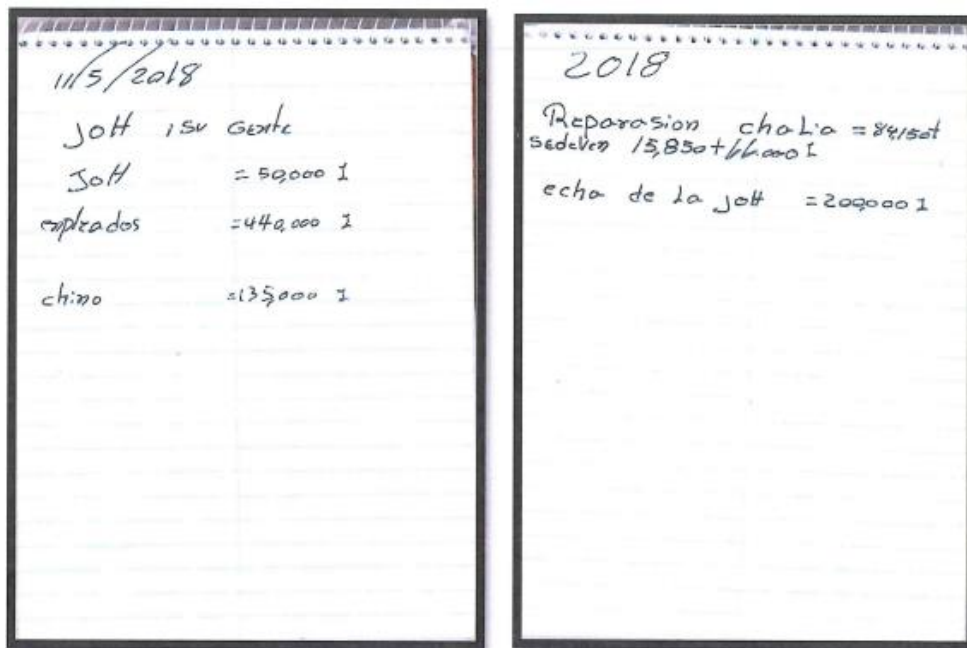 11/5/2018
JOH iSU GENTE
JOH = 50,000 I
emplrados = 440,000 I
chino = 135,000 I
2018
Reparasion chaLia = 84,150t
SEdEVEN 15,850 + I
echa de La JOH = 200,000 I